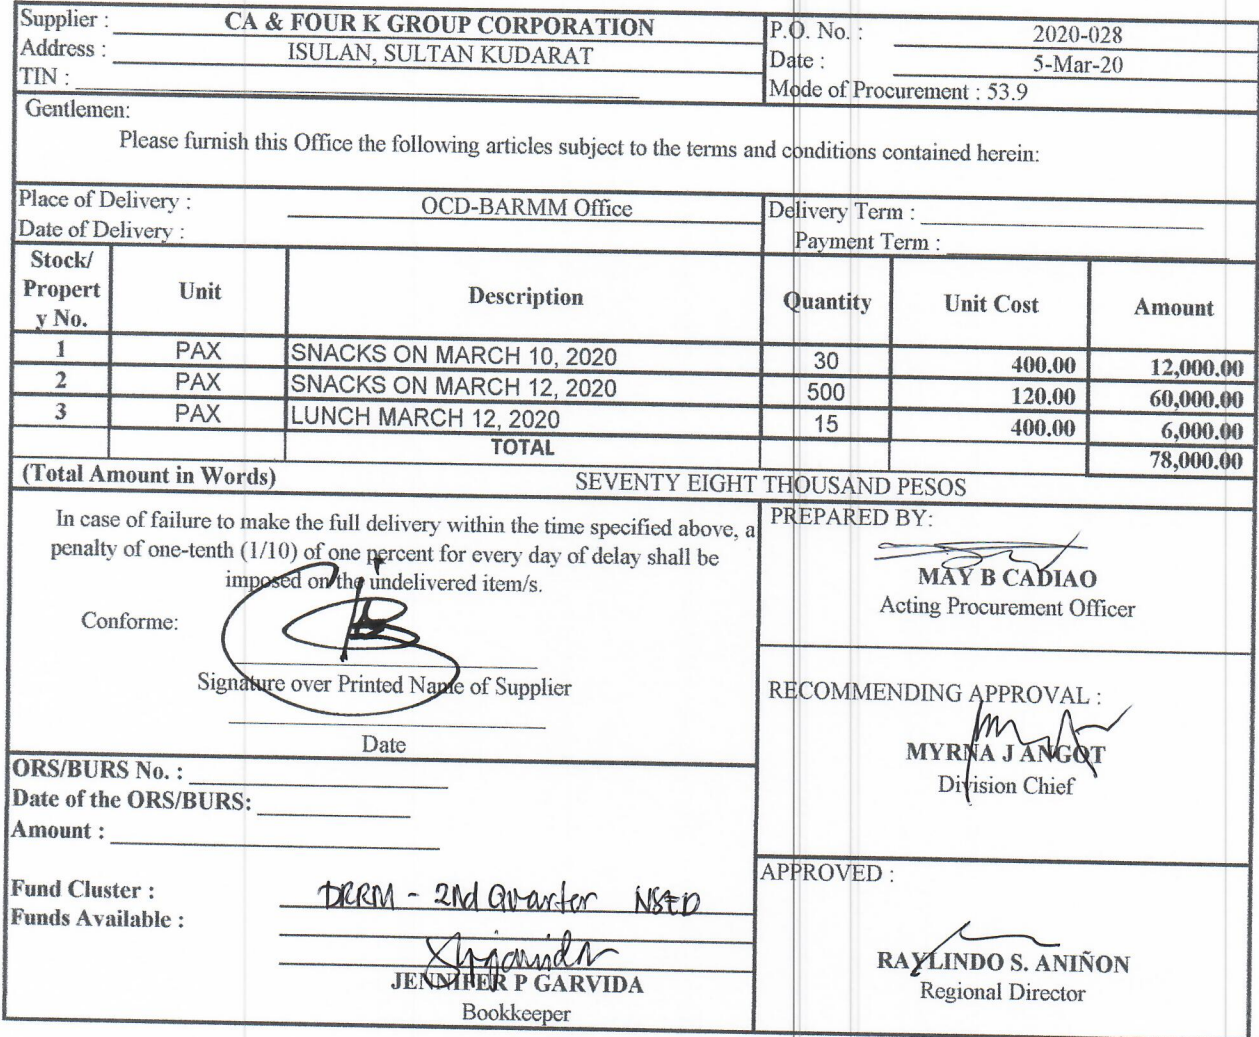 Supplier : CA & FOUR K GROUP CORPORATION
Address : ISULAN, SULTAN KUDARAT
TIN :
P.O. No. : 2020-028
Date : 5-Mar-20
Mode of Procurement : 53.9
Gentlemen:
Please furnish this Office the following articles subject to the terms and conditions contained herein:
Place of Delivery : OCD-BARMM Office
Date of Delivery :
Delivery Term :
Payment Term :
Stock/ Propert y No. Unit Description Quantity Unit Cost Amount
1 PAX SNACKS ON MARCH 10, 2020 30 400.00 12,000.00
2 PAX SNACKS ON MARCH 12, 2020 500 120.00 60,000.00
3 PAX LUNCH MARCH 12, 2020 15 400.00 6,000.00
TOTAL 78,000.00
(Total Amount in Words) SEVENTY EIGHT THOUSAND PESOS
In case of failure to make the full delivery within the time specified above, a
penalty of one-tenth (1/10) of one percent for every day of delay shall be
imposed on the undelivered item/s.
Conforme:
Signature over Printed Name of Supplier
Date
PREPARED BY:
MAY B CADIAO
Acting Procurement Officer
RECOMMENDING APPROVAL :
MYRNA J ANGOT
Division Chief
ORS/BURS No. :
Date of the ORS/BURS:
Amount :
Fund Cluster : DRRM - 2nd Quarter NSED
Funds Available :
JENNIFER P GARVIDA
Bookkeeper
APPROVED :
RAYLINDO S. ANIÑON
Regional Director